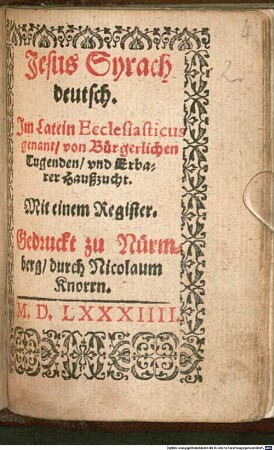 Jesus Syrach
deutsch.
Im Latein Ecclesiasticus
genant/ von Bürgerlichen
Tugenden/ vnd Erba-
rer Haußzucht.
Mit einem Register.
Gedruckt zu Nürm-
berg/ durch Nicolaum
Knorrn.
M. D. LXXXIIII.